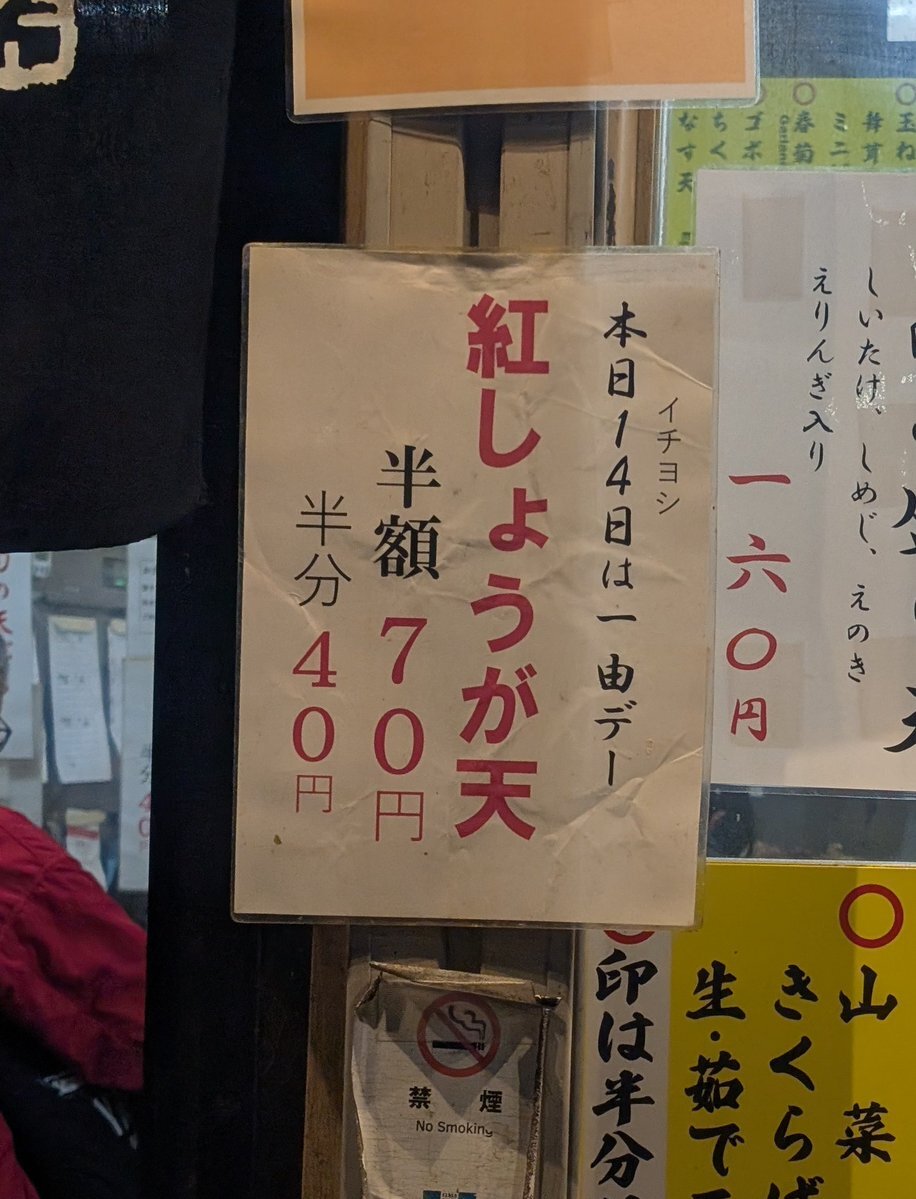 イチヨシ
本日14日は一由デー
紅しょうが天
半額 70円
半分 40円
禁煙
No Smoking
春菊
ゴボ
ちく
なす天
しいたけ、しめじ、えのき
えりんぎ入り
一六〇円
〇山菜
きくらげ
生・茹で
印は半分